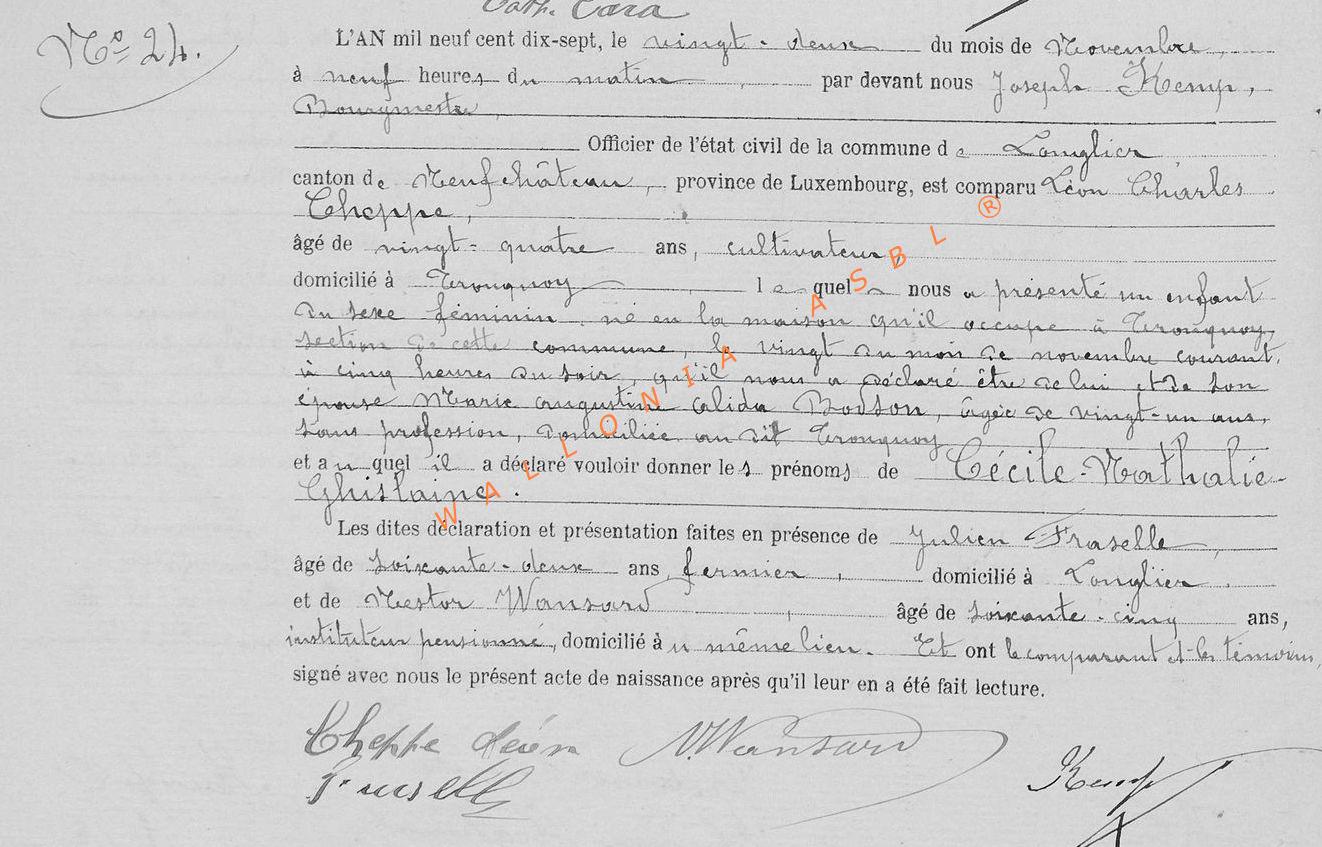 Cath. Cara
N° 24.
L'AN mil neuf cent dix-sept, le vingt-deux du mois de Novembre,
à neuf heures du matin, par devant nous Joseph Kemp,
Bourgmestre,
Officier de l'état civil de la commune de Longlier,
canton de Neufchâteau, province de Luxembourg, est comparu Léon Charles
Cheppe,
âgé de vingt-quatre ans, cultivateur,
domicilié à Tronquoy lequel nous a présenté un enfant
du sexe féminin, né en la maison qu'il occupe à Tronquoy,
section de cette commune, le vingt du mois de novembre courant,
à cinq heures du soir, qu'il nous a déclaré être de lui et de son
épouse Marie Augustine Alida Bodson, âgée de vingt-un ans,
sans profession, domiciliée au dit Tronquoy
et auquel il a déclaré vouloir donner les prénoms de Cécile-Nathalie-
Ghislaine.
Les dites déclaration et présentation faites en présence de Julien Fraselle,
âgé de soixante-deux ans, fermier, domicilié à Longlier
et de Nestor Wansard, âgé de soixante-cinq ans,
instituteur pensionné, domicilié au même lieu. Et ont le comparant et les témoins,
signé avec nous le présent acte de naissance après qu'il leur en a été fait lecture.
Cheppe Léon N. Wansard
Fraselle Kemp
WALLONIA ASBL ®